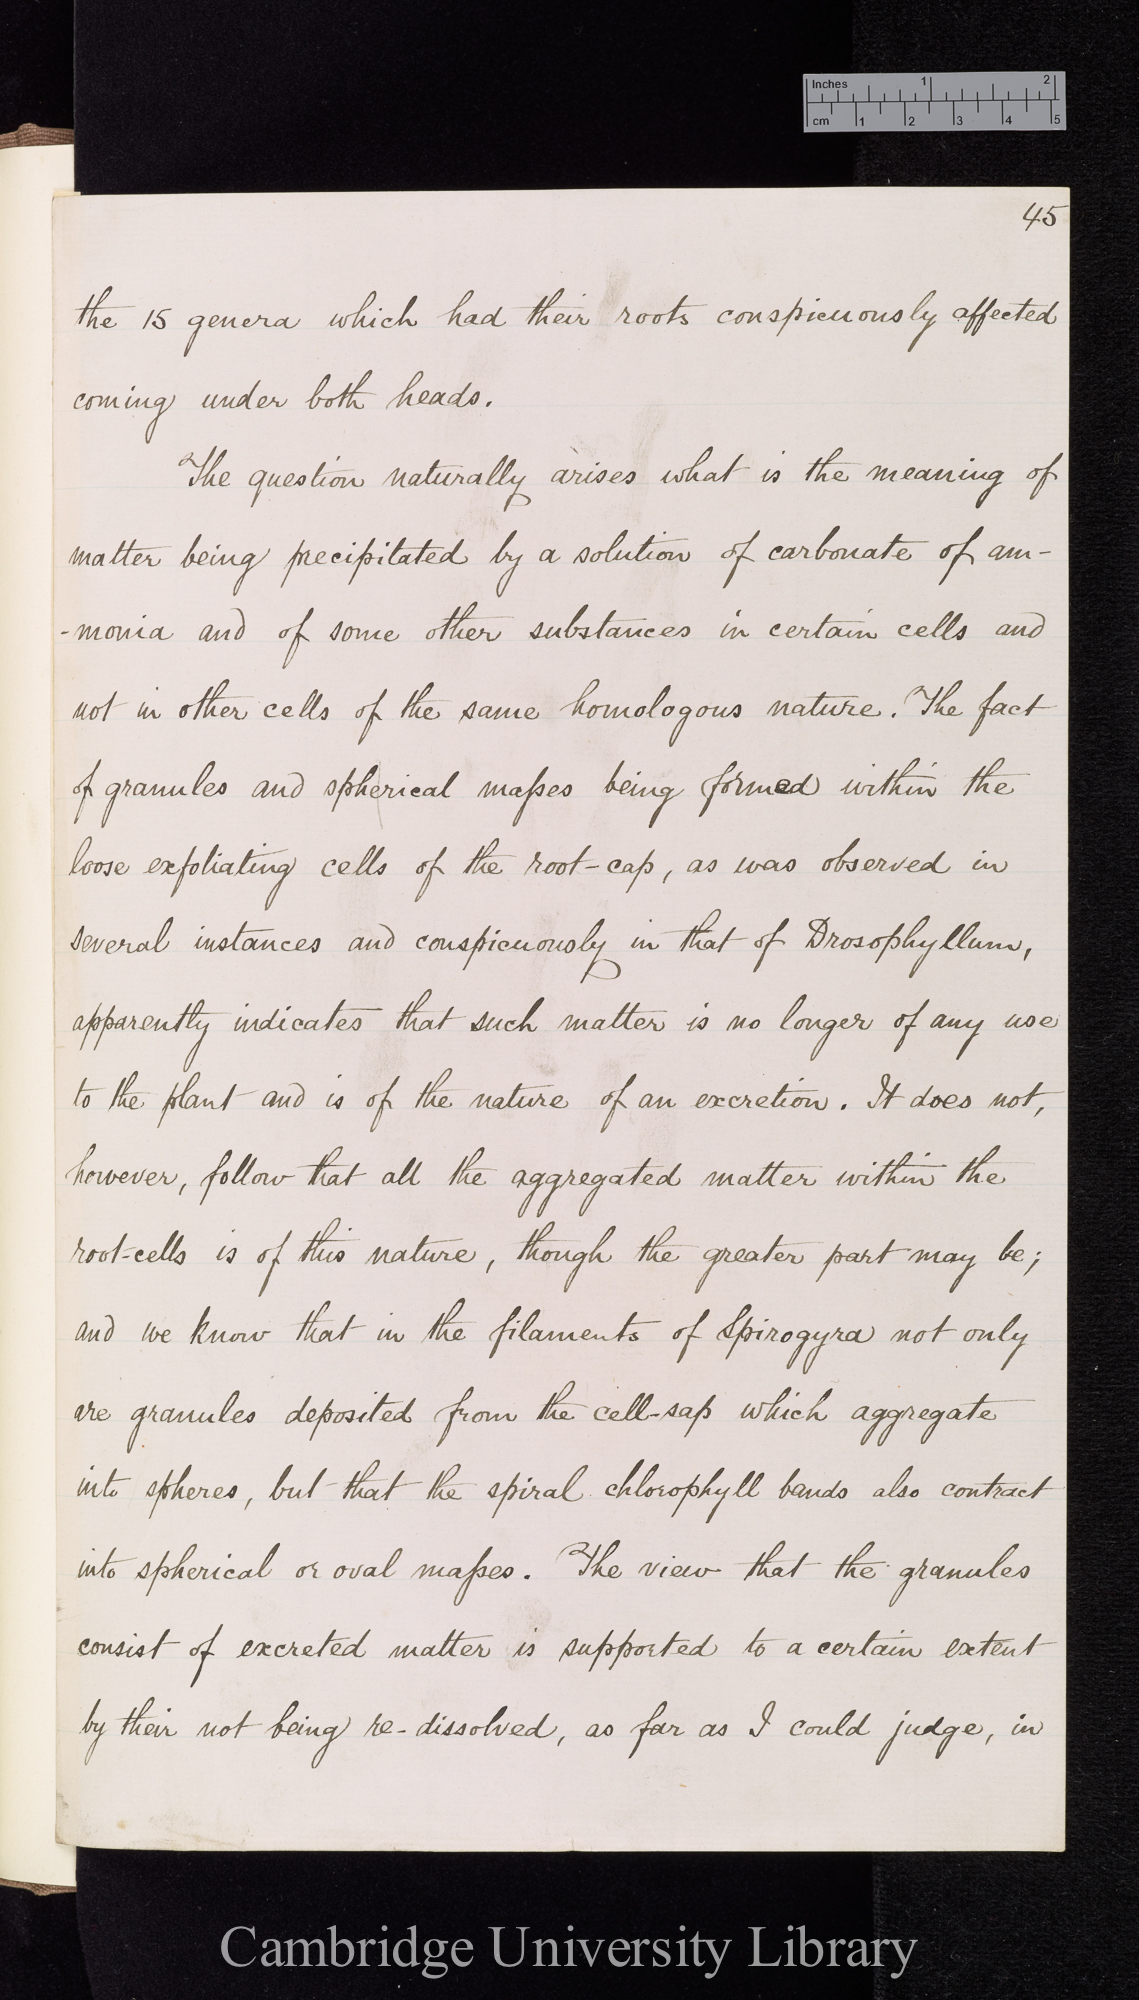 Inches 1 2
cm 1 2 3 4 5
45
the 15 genera which had their roots conspicuously affected
coming under both heads.
The question naturally arises what is the meaning of
matter being precipitated by a solution of carbonate of am-
-monia and of some other substances in certain cells and
not in other cells of the same homologous nature. The fact
of granules and spherical maſses being formed within the
loose exfoliating cells of the root-cap, as was observed in
several instances and conspicuously in that of Drosophyllum,
apparently indicates that such matter is no longer of any use
to the plant and is of the nature of an excretion. It does not,
however, follow that all the aggregated matter within the
root-cells is of this nature, though the greater part may be;
and we know that in the filaments of Spirogyra not only
are granules deposited from the cell-sap which aggregate
into spheres, but that the spiral chlorophyll bands also contract
into spherical or oval maſses. The view that the granules
consist of excreted matter is supported to a certain extent
by their not being re-dissolved, as far as I could judge, in
Cambridge University Library